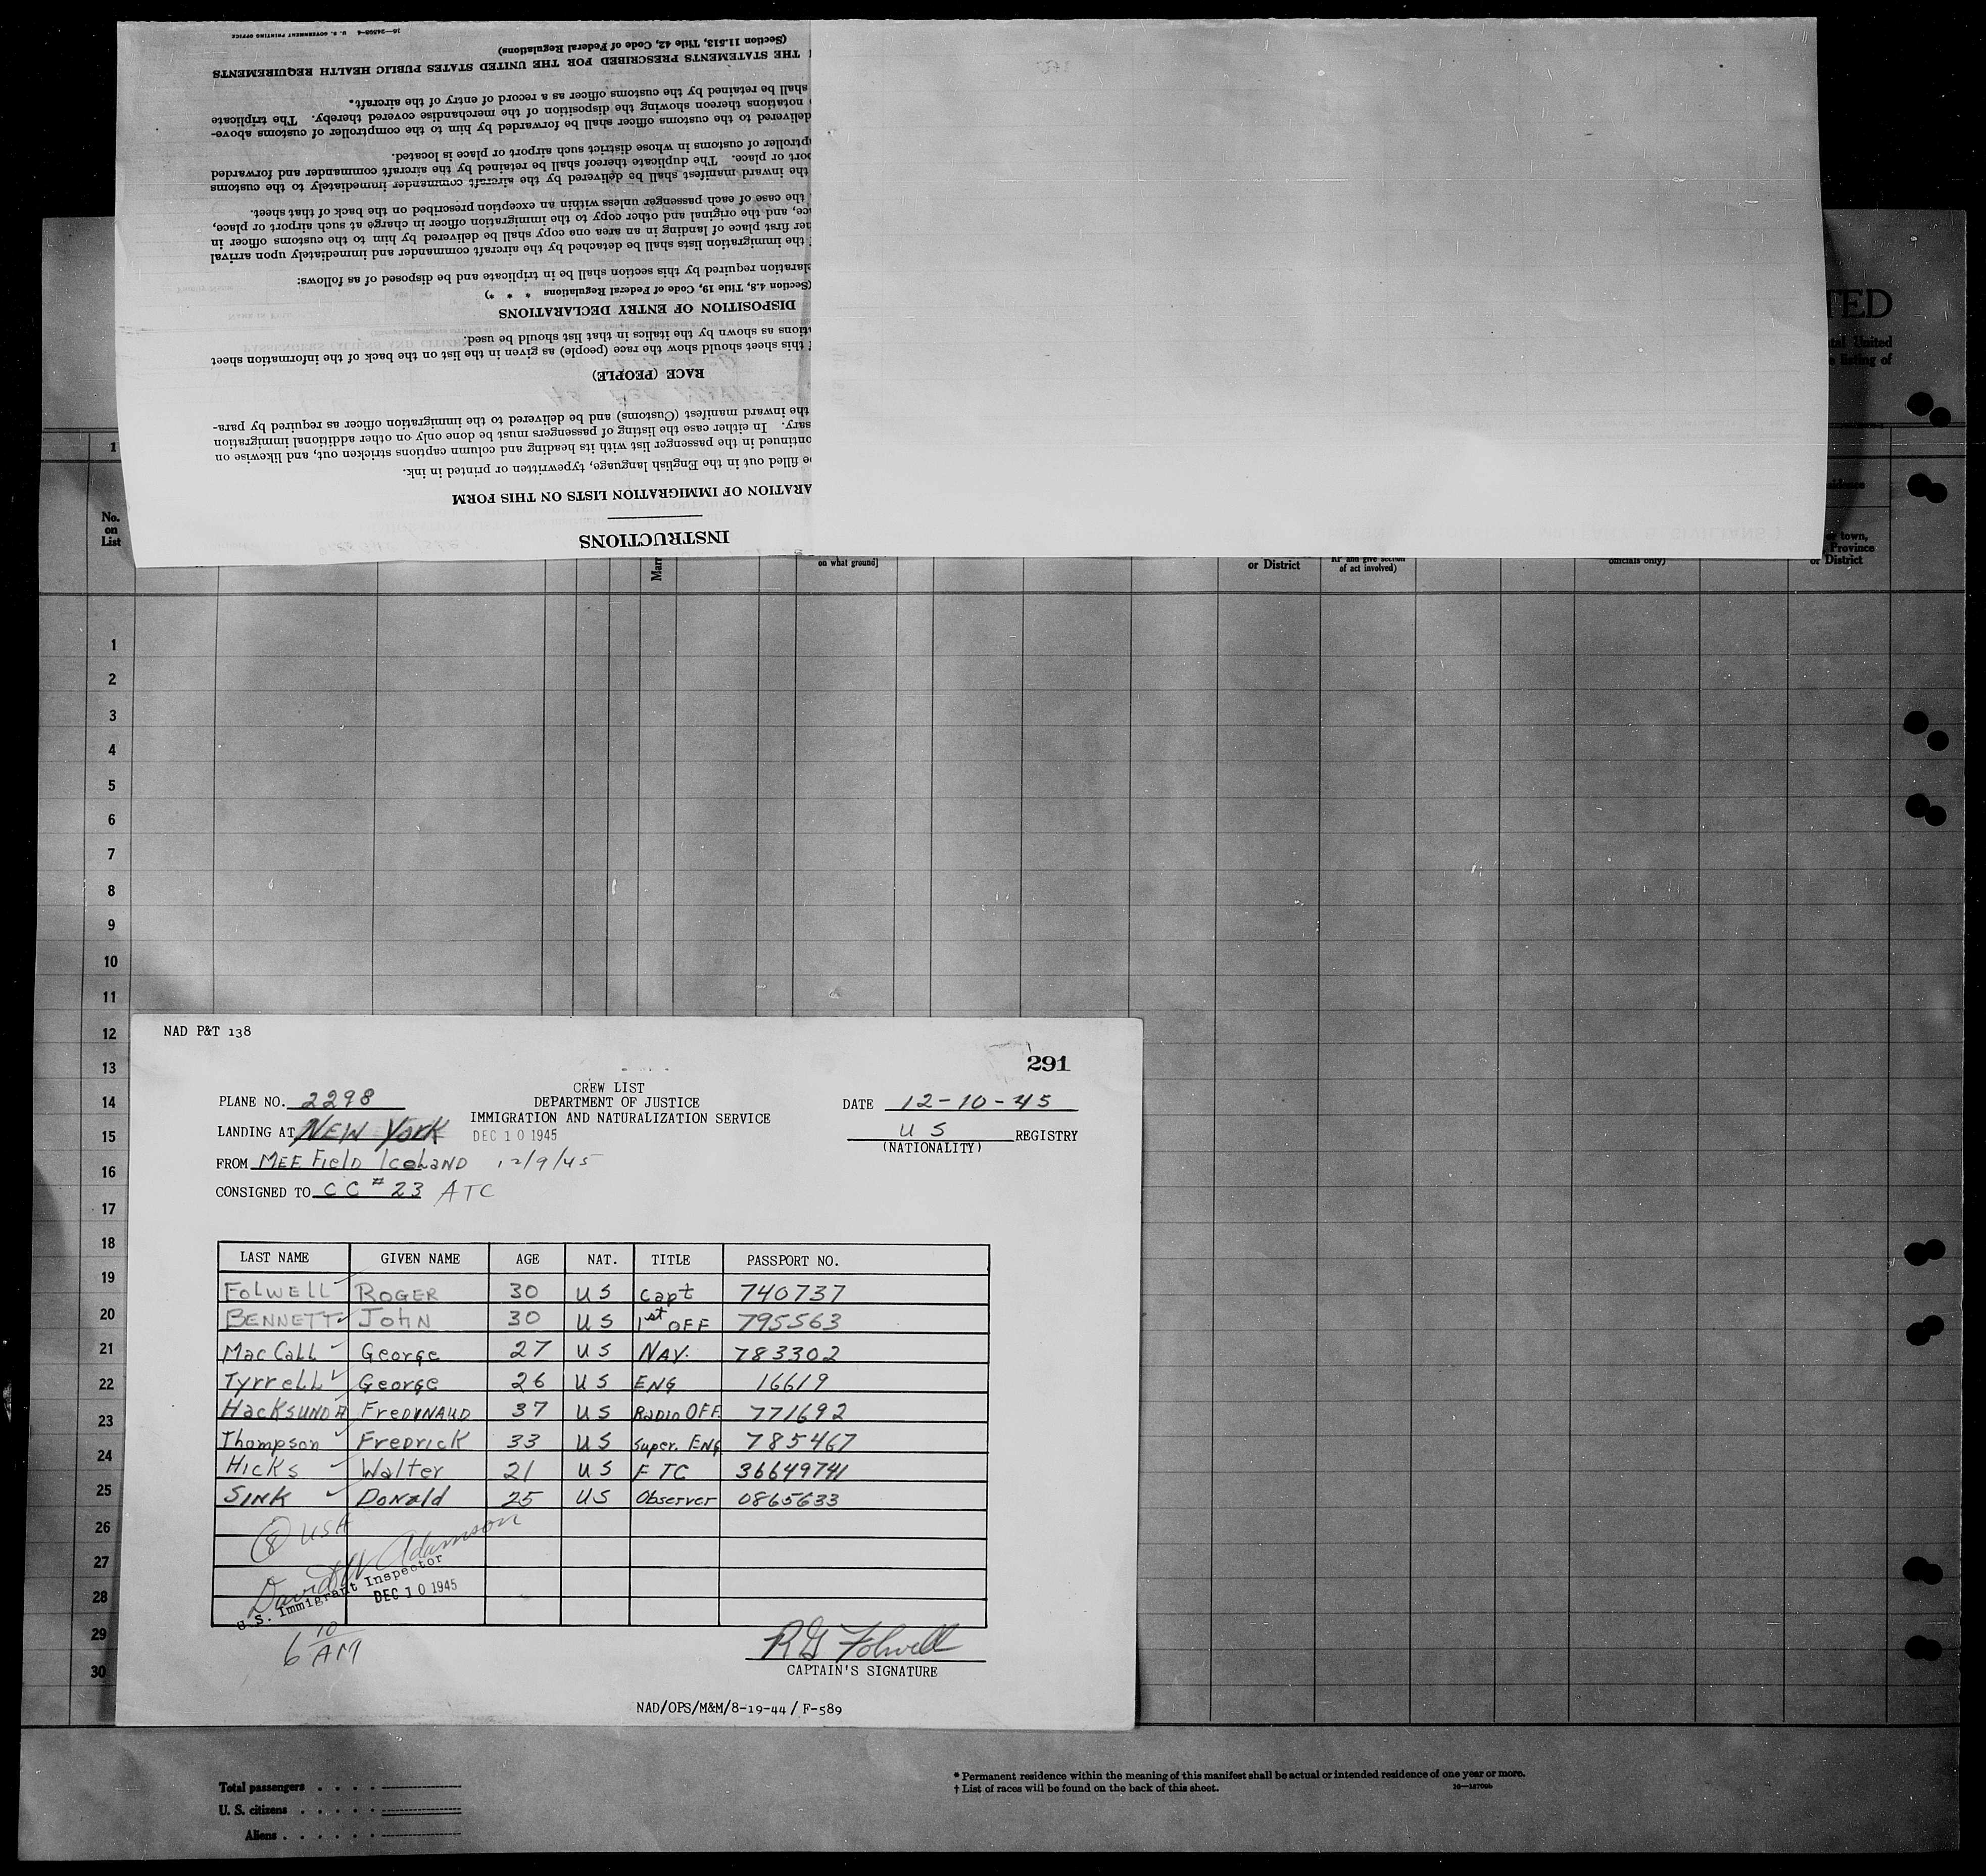 INSTRUCTIONS
ARATION OF IMMIGRATION LISTS ON THIS FORM
e filled out in the English language, typewritten or printed in ink.
ontinued in the passenger list with its heading and column captions stricken out, and likewise on
sary. In either case the listing of passengers must be done only on other additional immigration
the inward manifest (Customs) and be delivered to the immigration officer as required by para-
RACE (PEOPLE)
f this sheet should show the race (people) as given in the list on the back of the information sheet
tions as shown by the italics in that list should be used.
DISPOSITION OF ENTRY DECLARATIONS
(Section 4.8, Title 19, Code of Federal Regulations * * *)
laration required by this section shall be in triplicate and be disposed of as follows:
f the immigration lists shall be detached by the aircraft commander and immediately upon arrival
her first place of landing in an area one copy shall be delivered by him to the customs officer in
ce, and the original and other copy to the immigration officer in charge at such airport or place,
the case of each passenger unless within an exception prescribed on the back of that sheet.
the inward manifest shall be delivered by the aircraft commander immediately to the customs
port or place. The duplicate thereof shall be retained by the aircraft commander and forwarded
ptroller of customs in whose district such airport or place is located.
delivered to the customs officer shall be forwarded by him to the comptroller of customs above-
notations thereon showing the disposition of the merchandise covered thereby. The triplicate
shall be retained by the customs officer as a record of entry of the aircraft.
THE STATEMENTS PRESCRIBED FOR THE UNITED STATES PUBLIC HEALTH REQUIREMENTS
(Section 11.513, Title 42, Code of Federal Regulations)
16—24598-4 U. S. GOVERNMENT PRINTING OFFICE
TED
United
listing of
1
No. on List
on what ground]
or District
of act involved)
officials only)
town,
Province
or District
1
2
3
4
5
6
7
8
9
10
11
12
13
14
15
16
17
18
19
20
21
22
23
24
25
26
27
28
29
30
NAD P&T 138
291
CREW LIST
PLANE NO. 2298 DEPARTMENT OF JUSTICE DATE 12-10-45
IMMIGRATION AND NATURALIZATION SERVICE
LANDING AT NEW York DEC 10 1945 US REGISTRY
(NATIONALITY)
FROM MEE Field IceLAND 12/9/45
CONSIGNED TO CC # 23 ATC
LAST NAME GIVEN NAME AGE NAT. TITLE PASSPORT NO.
FOLWELL ROGER 30 US Capt 740737
BENNETT JOHN 30 US 1st OFF 795563
MacCall George 27 US NAV. 783302
TyrrelL George 26 US ENG 16619
US Radio OFF. 771692
Thompson Fredrick 33 US Super. ENG 785467
Hicks Walter 21 US F TC 36649741
SINK Donald 25 US Observer 0865633
8 USA
David W Adamson
U.S. Immigrant Inspector
DEC 10 1945
6 10 AM
RG Folwell
CAPTAIN'S SIGNATURE
NAD/OPS/M&M/8-19-44/ F-589
Total passengers
U. S. citizens
Aliens
* Permanent residence within the meaning of this manifest shall be actual or intended residence of one year or more.
† List of races will be found on the back of this sheet.